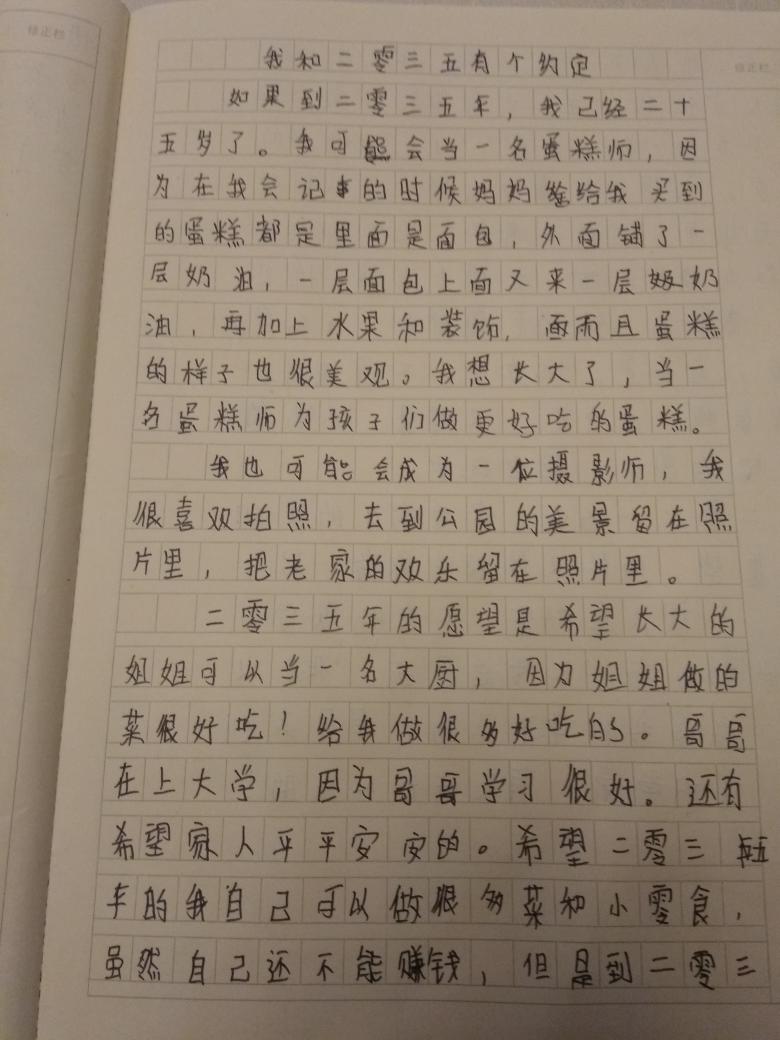 我和二零三五有个约定
如果到二零三五年，我已经二十
五岁了。我可能会当一名蛋糕师，因
为在我会记事的时候妈妈给我买到
的蛋糕都是里面是面包，外面铺了一
层奶油，一层面包上面又来一层奶
油，再加上水果和装饰，而且蛋糕
的样子也很美观。我想长大了，当一
名蛋糕师为孩子们做更好吃的蛋糕。
我也可能会成为一位摄影师，我
很喜欢拍照，去到公园的美景留在照
片里，把老家的欢乐留在照片里。
二零三五年的愿望是希望长大的
姐姐可以当一名大厨，因为姐姐做的
菜很好吃！给我做很多好吃的。哥哥
在上大学，因为哥哥学习很好。还有
希望家人平平安安的。希望二零三五
年的我自己可以做很多菜和小零食，
虽然自己还不能赚钱，但是到二零三